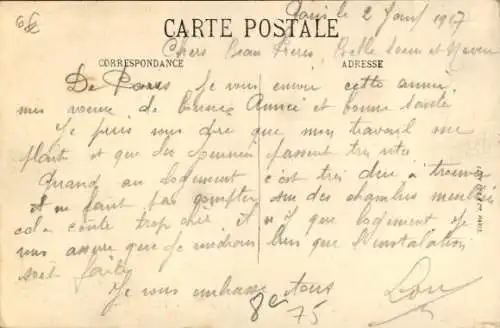 CARTE POSTALE
Paris le 2 Janv 1917
Chers Beau Frère, Belle Soeur et Neveu
CORRESPONDANCE
ADRESSE
De Paris je vous envoie cette année
mes voeux de bonne Année et bonne santé
Je puis vous dire que mon travail me
plait et que les journées passent très vite
Quand au logement c'est très dur à trouver
Il ne faut pas compter sur des chambres meublées
cela coûte trop cher il n'y a que logement je
vous assure que je voudrais bien que l'installation
soit faite
Je vous embrasse tous
8e
75